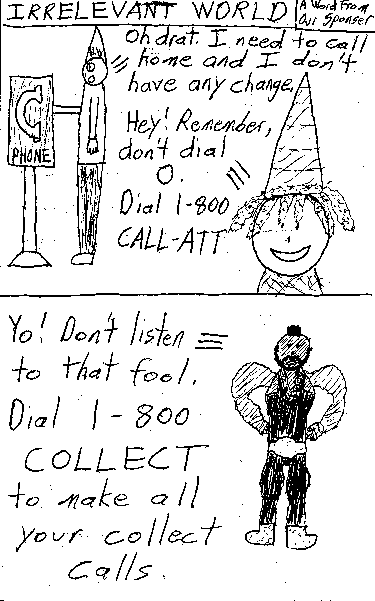 IRRELEVANT WORLD
A Word From
Our Sponser
Oh drat. I need to call
home and I don't
have any change.
PHONE
Hey! Remember,
don't dial
O.
Dial 1-800
CALL-ATT
Yo! Don't listen
to that fool.
Dial 1-800
COLLECT
to make all
your collect
calls.